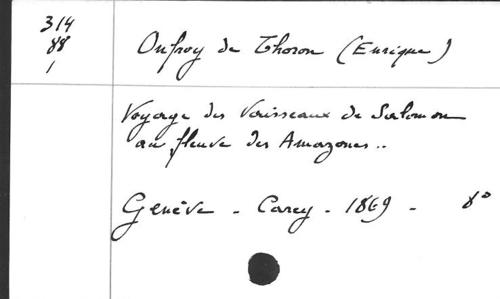 314
88
1
Onfroy de Thoron (Enrique)
Voyage des Vaisseaux de Salomon
au fleuve des Amazones..
Genève - Carey - 1869 - 8°